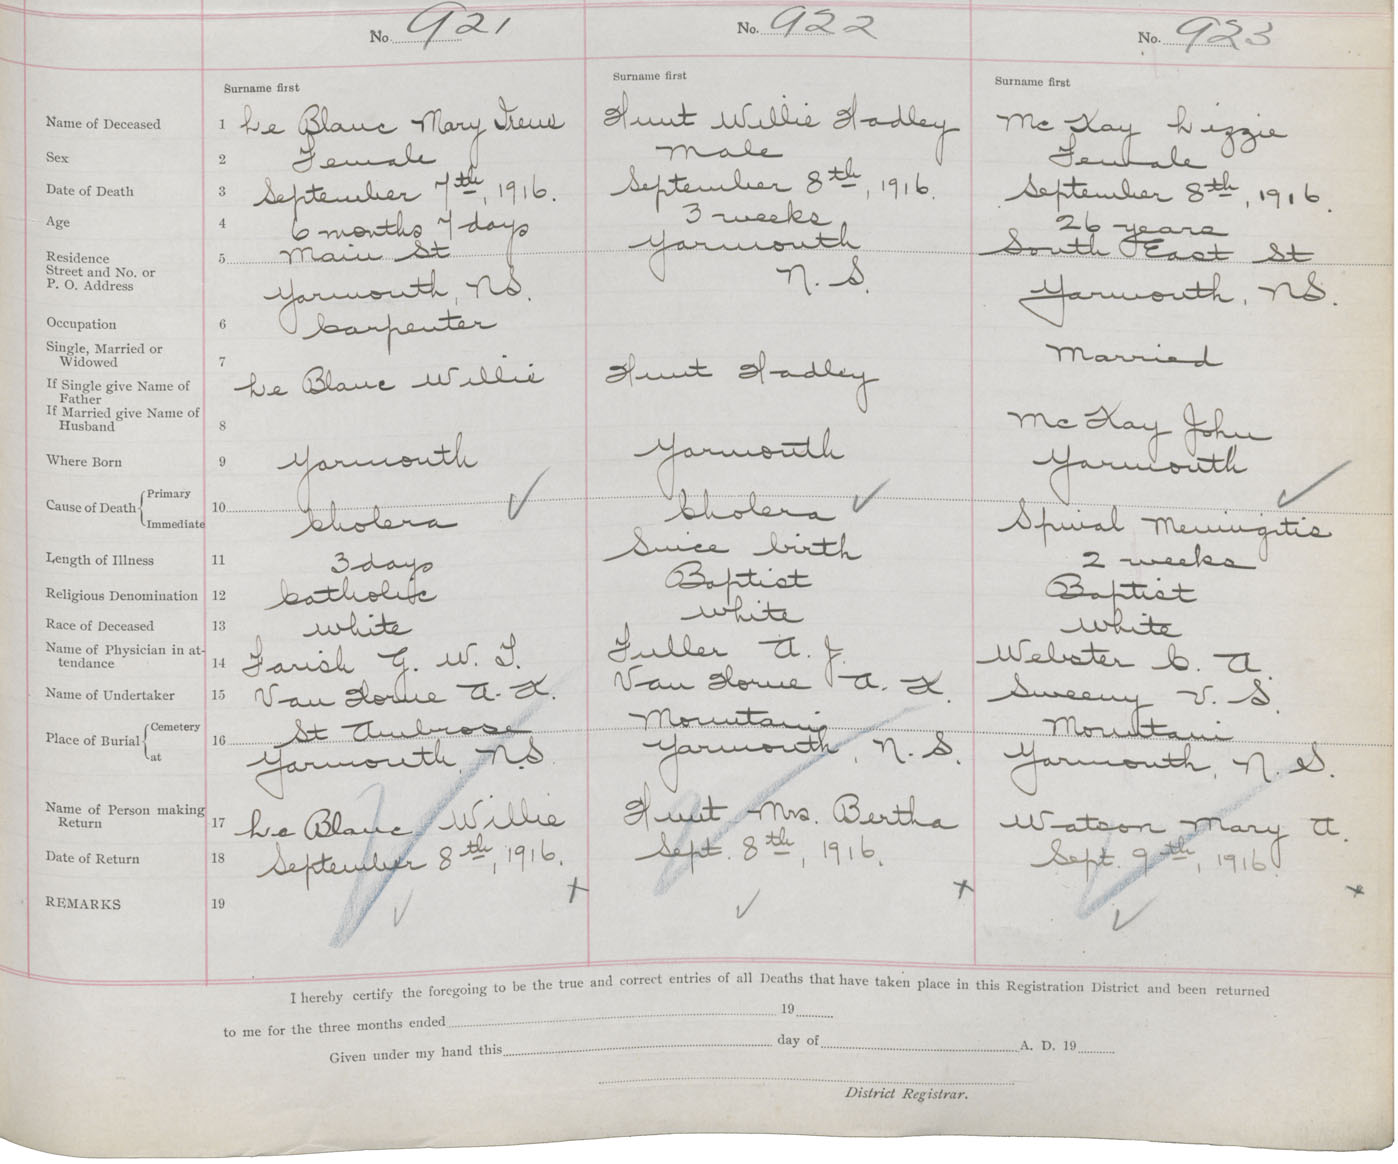 No. 921 No. 922 No. 923
Surname first Surname first Surname first
Name of Deceased 1 Le Blanc Mary Irene Hunt Willie Hadley Mc Kay Lizzie
Sex 2 Female Male Female
Date of Death 3 September 7th, 1916. September 8th, 1916. September 8th, 1916.
Age 4 6 months 7 days 3 weeks 26 years
Residence 5 Main St Yarmouth South East St
Street and No. or
P. O. Address Yarmouth, N.S. N. S. Yarmouth, N.S.
Occupation 6 Carpenter
Single, Married or
Widowed 7 Married
If Single give Name of
Father Le Blanc Willie Hunt Hadley
If Married give Name of
Husband 8 Mc Kay John
Where Born 9 Yarmouth Yarmouth Yarmouth
Cause of Death { Primary 10
Immediate Cholera Cholera Spinal Meningitis
Length of Illness 11 3 days Since birth 2 weeks
Religious Denomination 12 Catholic Baptist Baptist
Race of Deceased 13 white white white
Name of Physician in at-
tendance 14 Farish G. W. T. Fuller A. J. Webster C. A.
Name of Undertaker 15 Van Horne A. K. Van Horne A. K. Sweeny V. S.
Place of Burial { Cemetery 16 St Ambrose Mountain Mountain
at Yarmouth, N.S. Yarmouth, N. S. Yarmouth, N. S.
Name of Person making
Return 17 Le Blanc Willie Hunt Mrs. Bertha Watson Mary A.
Date of Return 18 September 8th, 1916. Sept. 8th, 1916. Sept. 9th, 1916.
REMARKS 19
I hereby certify the foregoing to be the true and correct entries of all Deaths that have taken place in this Registration District and been returned
to me for the three months ended 19
Given under my hand this day of A. D. 19
District Registrar.